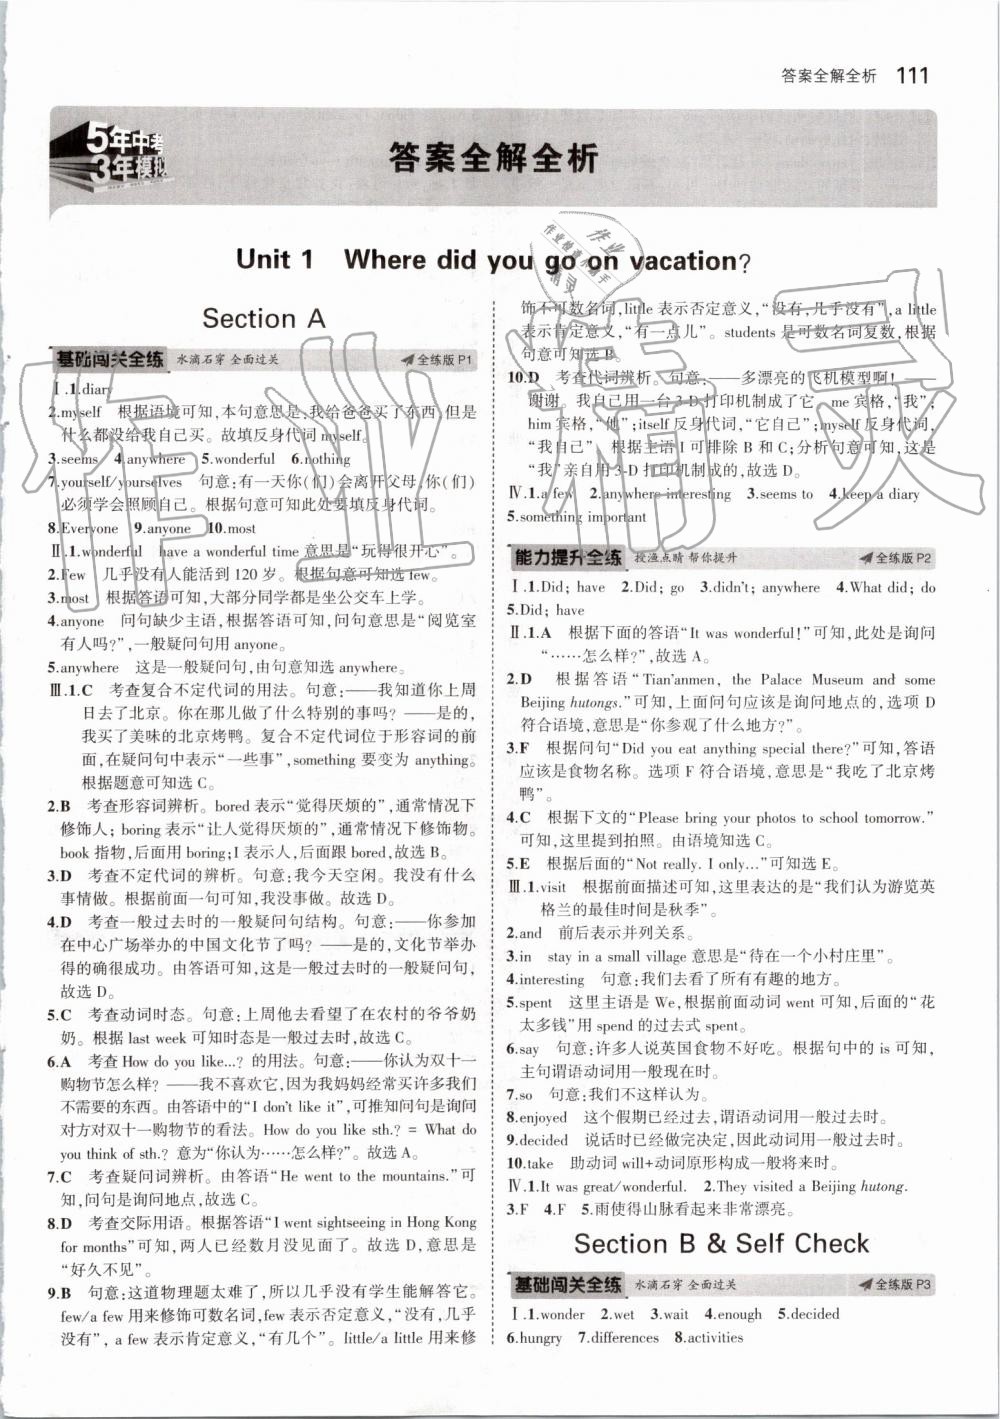 答案全解全析 111
5年中考
3年模拟
答案全解全析
Unit 1 Where did you go on vacation?
Section A
基础闯关全练 水滴石穿 全面过关 全练版P1
Ⅰ.1.diary
2.myself 根据语境可知,本句意思是:我给爸爸买了东西,但是
什么都没给我自己买。故填反身代词 myself。
3.seems 4.anywhere 5.wonderful 6.nothing
7.yourself/yourselves 句意:有一天你(们)会离开父母,你(们)
必须学会照顾自己。根据句意可知此处要填反身代词。
8.Everyone 9.anyone 10.most
Ⅱ.1.wonderful have a wonderful time 意思是“玩得很开心”。
2.Few 几乎没有人能活到 120 岁。根据句意可知选 few。
3.most 根据答语可知,大部分同学都是坐公交车上学。
4.anyone 问句缺少主语,根据答语可知,问句意思是“阅览室
有人吗?”,一般疑问句用 anyone。
5.anywhere 这是一般疑问句,由句意知选 anywhere。
Ⅲ.1.C 考查复合不定代词的用法。句意:——我知道你上周
日去了北京。你在那儿做了什么特别的事吗? ——是的,
我买了美味的北京烤鸭。复合不定代词位于形容词的前
面,在疑问句中表示“一些事”,something 要变为 anything。
根据题意可知选 C。
2.B 考查形容词辨析。bored 表示“觉得厌烦的”,通常情况下
修饰人; boring 表示“让人觉得厌烦的”,通常情况下修饰物。
book 指物,后面用 boring;I 表示人,后面跟 bored,故选 B。
3.D 考查不定代词的辨析。句意:我今天空闲。我没有什么
事情做。根据前面一句可知,我没事做。故选 D。
4.D 考查一般过去时的一般疑问句结构。句意:——你参加
在中心广场举办的中国文化节了吗? ——是的,文化节举办
得的确很成功。由答语可知,这是一般过去时的一般疑问句,
故选 D。
5.C 考查动词时态。句意:上周他去看望了在农村的爷爷奶
奶。根据 last week 可知时态是一般过去时,故选 C。
6.A 考查 How do you like...? 的用法。句意:——你认为双十一
购物节怎么样? ——我不喜欢它,因为我妈妈经常买许多我们
不需要的东西。由答语中的“I don't like it”,可推知问句是询问
对方对双十一购物节的看法。How do you like sth.? = What do
you think of sth.? 意为“你认为……怎么样?”。故选 A。
7.C 考查疑问词辨析。由答语“He went to the mountains.”可
知,问句是询问地点,故选 C。
8.D 考查交际用语。根据答语“I went sightseeing in Hong Kong
for months”可知,两人已经数月没见面了。故选 D,意思是
“好久不见”。
9.B 句意:这道物理题太难了,所以几乎没有学生能解答它。
few/a few 用来修饰可数名词,few 表示否定意义,“没有,几乎
没有”, a few 表示肯定意义,“有几个”。little/a little 用来修
饰不可数名词,little 表示否定意义,“没有,几乎没有”,a little
表示肯定意义,“有一点儿”。students 是可数名词复数,根据
句意可知选 B。
10.D 考查代词辨析。句意:——多漂亮的飞机模型啊! ——
谢谢。我亲自用一台 3-D 打印机制成了它。me 宾格,“我”;
him 宾格,“他”;itself 反身代词,“它自己”;myself 反身代词,
“我自己”。根据主语 I 可排除 B 和 C;分析句意可知,这是
“我”亲自用 3-D 打印机制成的,故选 D。
Ⅳ.1.a few 2.anywhere interesting 3.seems to 4.keep a diary
5.something important
能力提升全练 授渔点睛 帮你提升 全练版P2
Ⅰ.1.Did; have 2.Did; go 3.didn't; anywhere 4.What did; do
5.Did; have
Ⅱ.1.A 根据下面的答语“It was wonderful!”可知,此处是询问
“……怎么样?”,故选 A。
2.D 根据答语“Tian'anmen, the Palace Museum and some
Beijing hutongs.”可知,上面问句应该是询问地点的,选项 D
符合语境,意思是“你参观了什么地方?”。
3.F 根据问句“Did you eat anything special there?”可知,答语
应该是食物名称。选项 F 符合语境,意思是“我吃了北京烤
鸭”。
4.C 根据下文的“Please bring your photos to school tomorrow.”
可知,这里提到拍照。由语境知选 C。
5.E 根据后面的“Not really. I only...”可知选 E。
Ⅲ.1.visit 根据前面描述可知,这里表达的是“我们认为游览英
格兰的最佳时间是秋季”。
2.and 前后表示并列关系。
3.in stay in a small village 意思是“待在一个小村庄里”。
4.interesting 句意:我们去看了所有有趣的地方。
5.spent 这里主语是 We,根据前面动词 went 可知,后面的“花
太多钱”用 spend 的过去式 spent。
6.say 句意:许多人说英国食物不好吃。根据句中的 is 可知,
主句谓语动词用一般现在时。
7.so 句意:我们不这样认为。
8.enjoyed 这个假期已经过去,谓语动词用一般过去时。
9.decided 说话时已经做完决定,因此动词用一般过去时。
10.take 助动词 will+动词原形构成一般将来时。
Ⅳ.1.It was great/wonderful. 2.They visited a Beijing hutong.
3.F 4.F 5.雨使得山脉看起来非常漂亮。
Section B & Self Check
基础闯关全练 水滴石穿 全面过关 全练版P3
Ⅰ.1.wonder 2.wet 3.wait 4.enough 5.decided
6.hungry 7.differences 8.activities
作业精灵